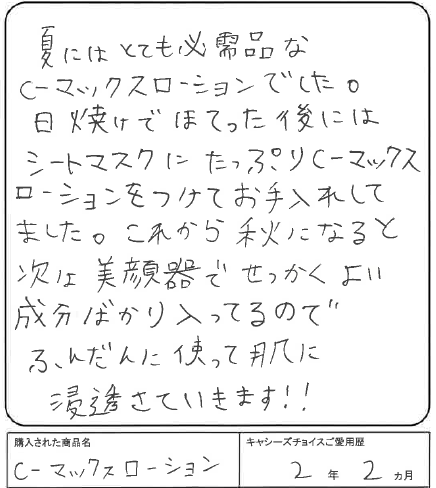 夏にはとても必需品な
C-マックスローションでした。
日焼けでほてった後には
シートマスクにたっぷりC-マックス
ローションをつけてお手入れして
ました。これから秋になると
次は美顔器でせっかくよい
成分ばかり入ってるので
ふんだんに使って肌に
浸透さていきます!!
購入された商品名
C-マックスローション
キャシーズチョイスご愛用歴
2年2ヵ月